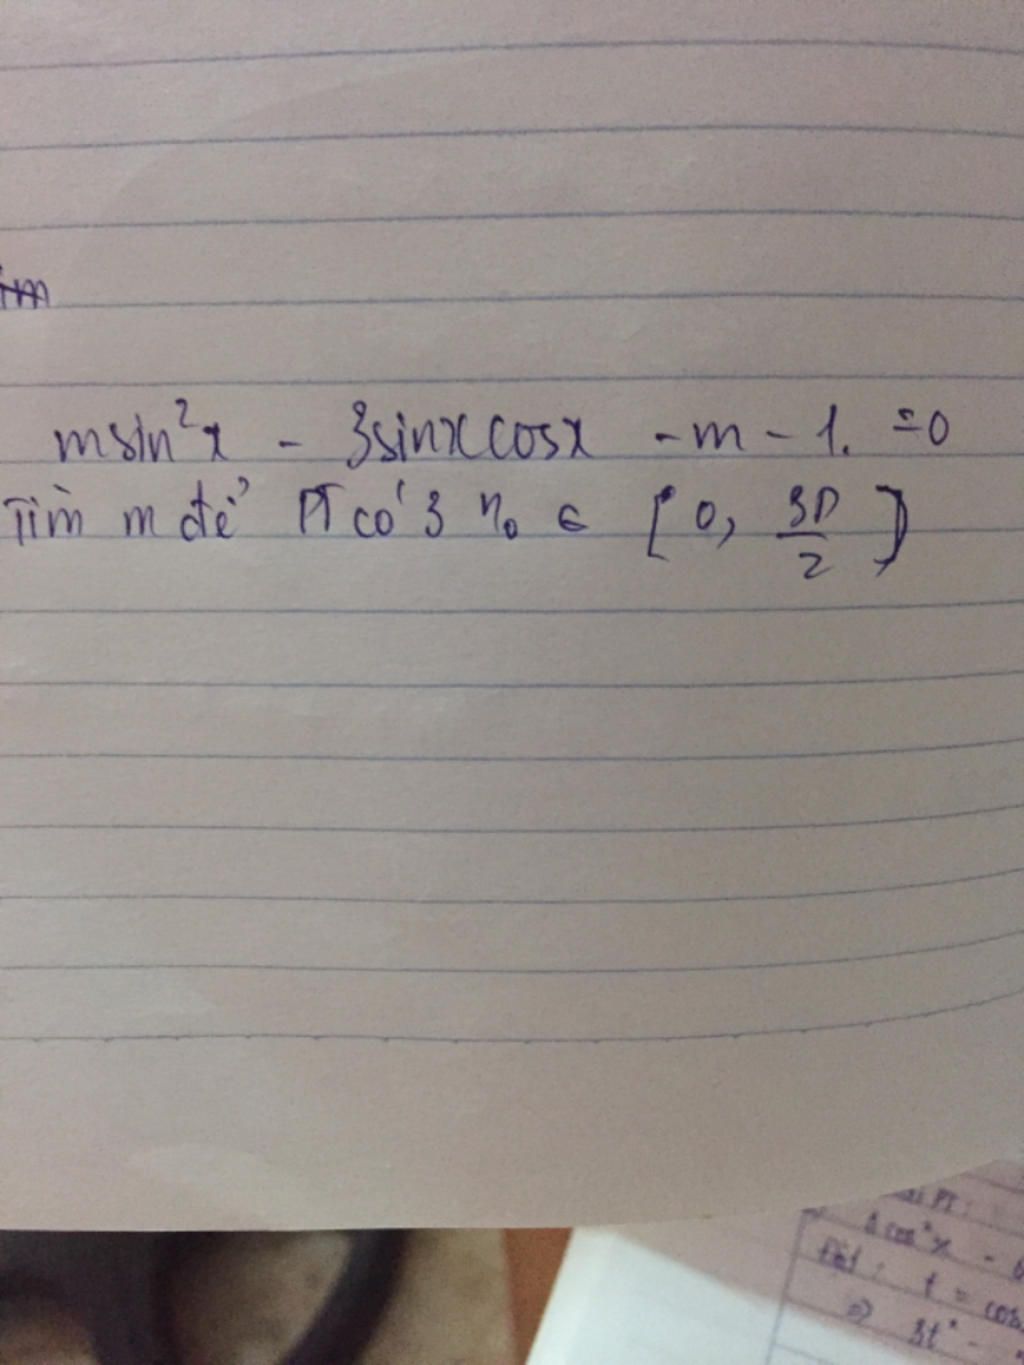 msin²x - 3sinxcosx - m - 1. = 0
Tìm m để PT có 3 n₀ ∈ [0, 3π/2]
PT:
cos²x -
Đặt: t = cos
⇒ 3t² -